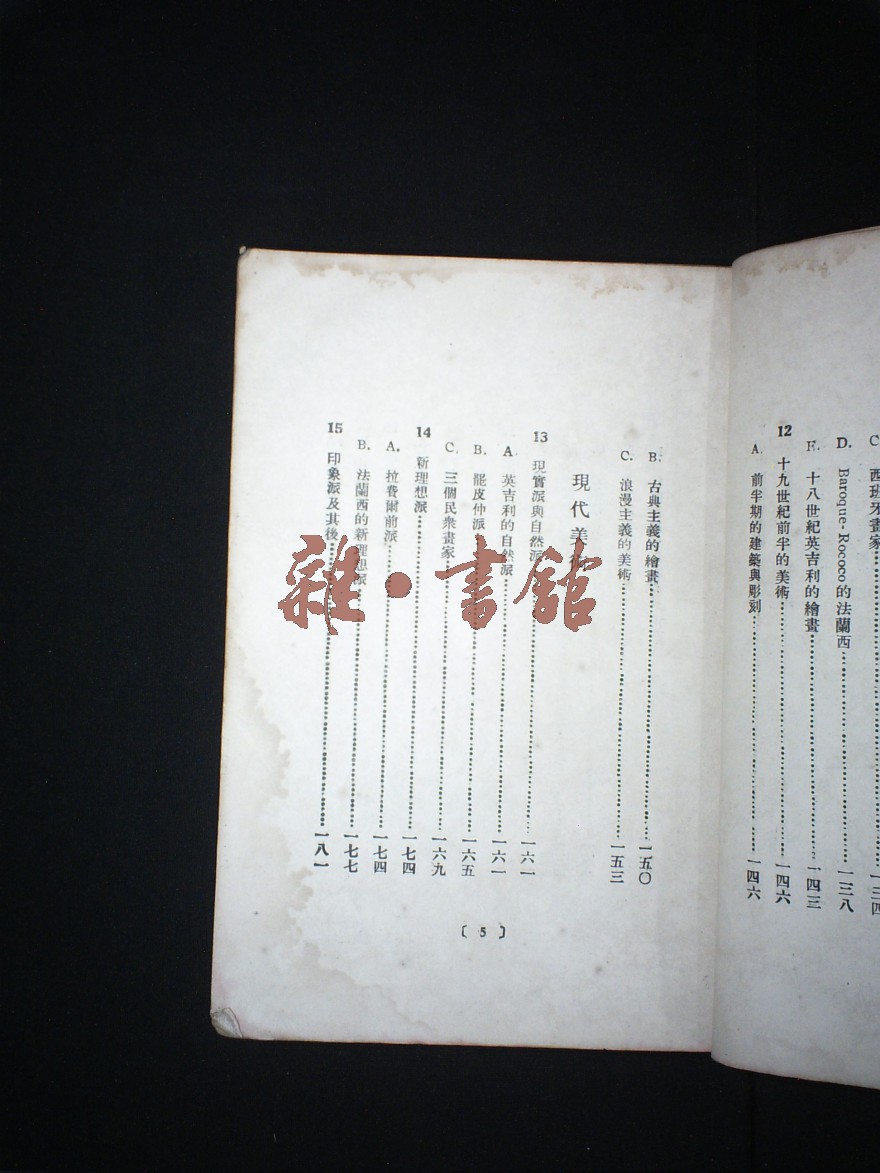 C 西班牙畫家 一三四
D. Baroque-Rococo的法蘭西 一三八
E. 十八世紀英吉利的繪畫 一四三
12 十九世紀前半的美術 一四六
A 前半期的建築與彫刻 一四六
B. 古典主義的繪畫 一五〇
C. 浪漫主義的美術 一五三
現代美術
13 現實派與自然派 一六一
A 英吉利的自然派 一六一
B. 罷皮仲派 一六五
C. 三個民衆畫家 一六九
14 新理想派 一七四
A. 拉費爾前派 一七四
B. 法蘭西的新理想派 一七七
15 印象派及其後 一八一
〔5〕
雜·書館